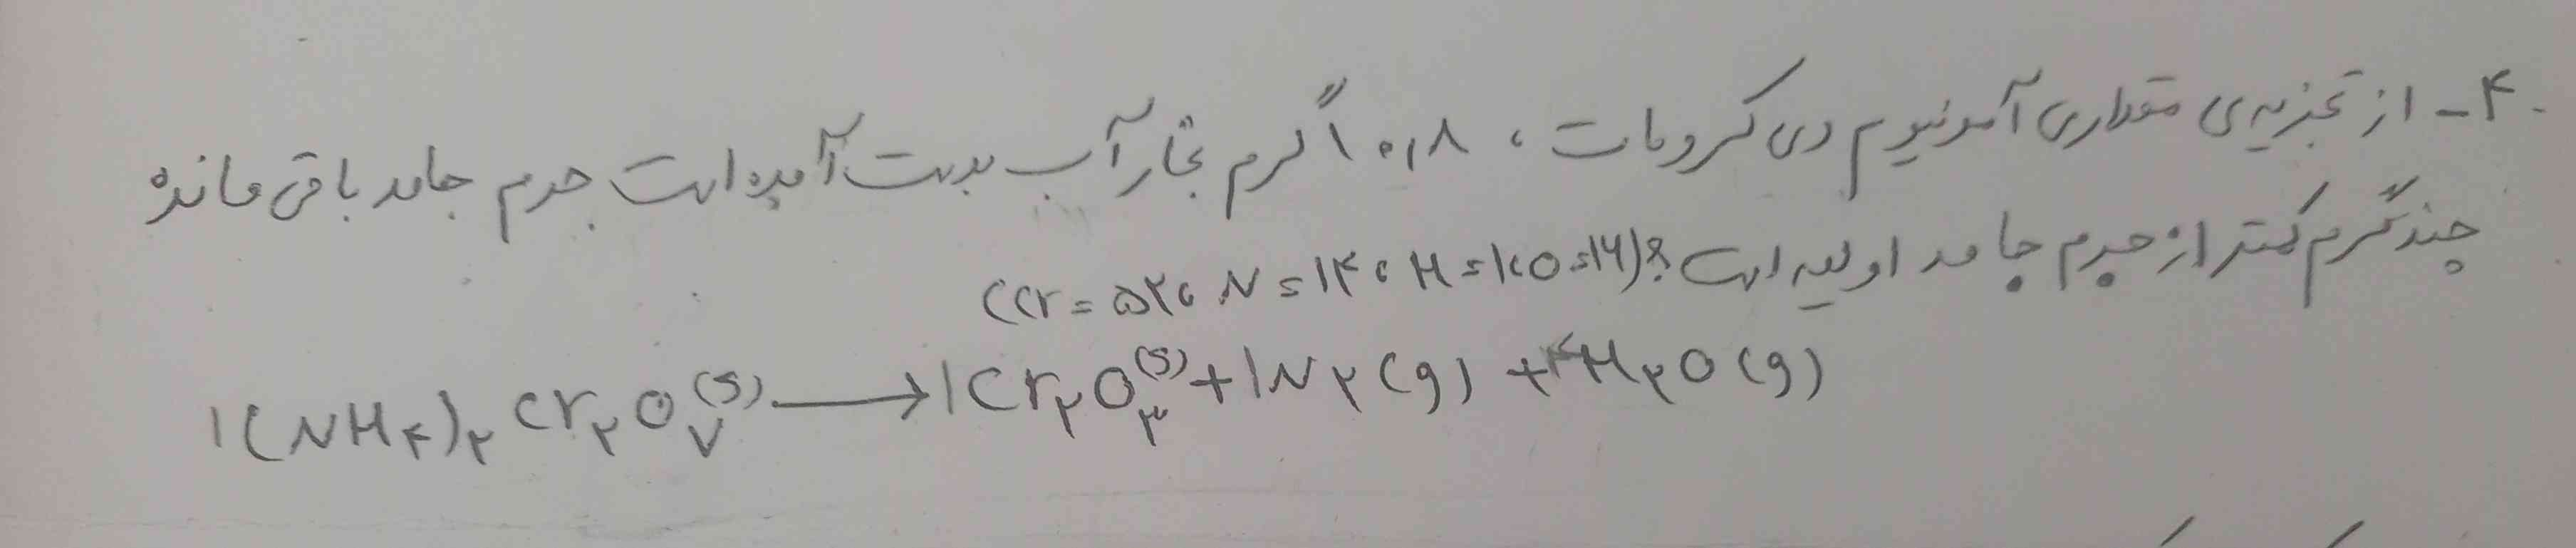 ۴- از تجزیه‌ی مقداری آمونیوم دی کرومات ، ۱۰٫۸ گرم بخار آب بدست آمده است جرم جامد باقی مانده
چند گرم کمتر از جرم جامد اولیه است ؟ (Cr = ۵۲، N = ۱۴، H = ۱، O = ۱۶)
۱(NH۴)۲ Cr۲O۷(s) → ۱Cr۲O۳(s) + ۱N۲(g) + ۴H۲O(g)